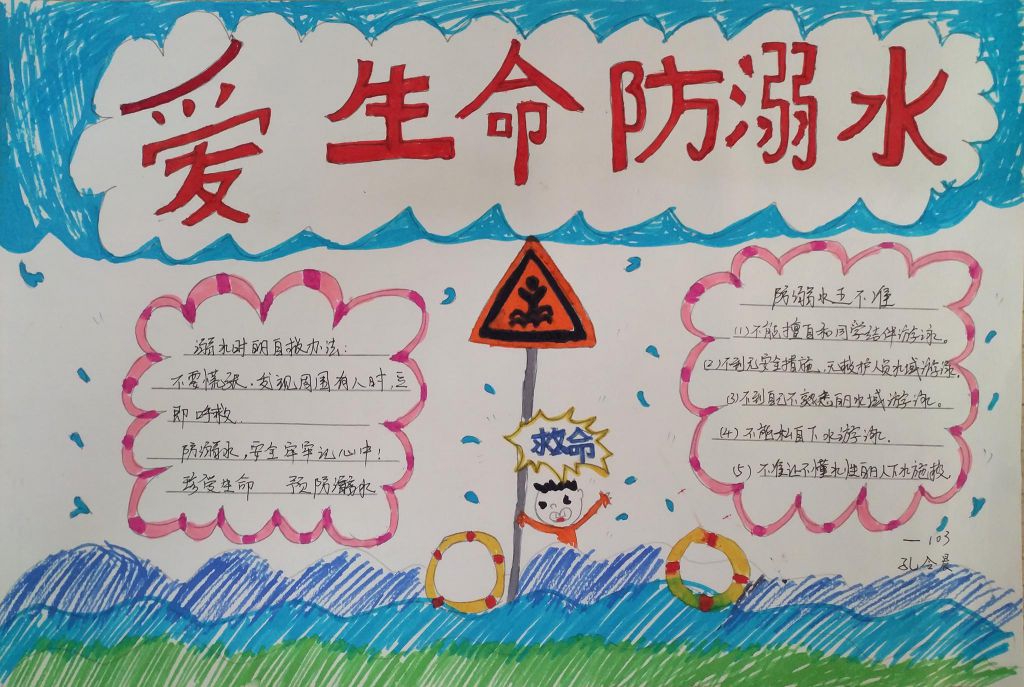 爱生命防溺水
溺水时的自救办法:
不要慌张.发现周围有人时,立
即呼救.
防溺水,安全牢牢记心中!
珍爱生命 预防溺水
救命
防溺水五不准
(1)不能擅自和同学结伴游泳。
(2)不到无安全措施、无救护人员水域游泳.
(3)不到自己不熟悉的水域游泳。
(4)不能私自下水游泳.
(5)不准让不懂水性的人下水施救
一103
孔令晨